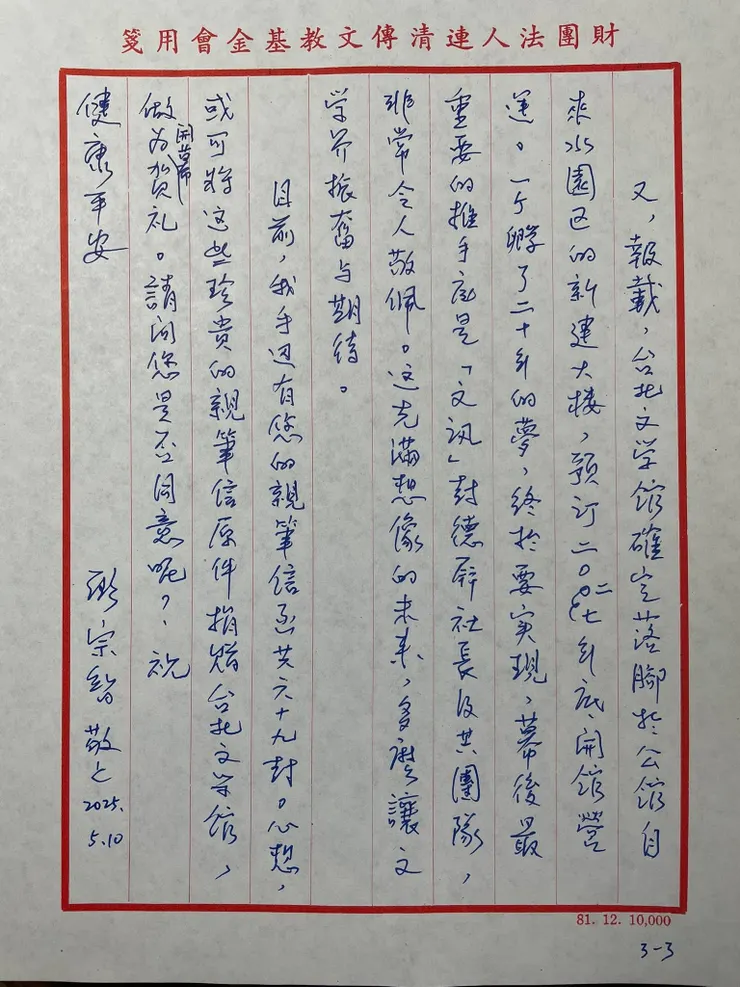 財團法人連清傳文教基金會用箋
又，報載，台北文学館確定落腳於公館自
來水園区的新建大楼，預订二〇二七年底開館營
運。一个孵了二十年的夢，終於要实現，幕後最
重要的推手應是「文訊」封德屏社長及其團隊，
非常令人敬佩。这充滿想像的未来，多麼讓文
学界振奮与期待。
目前，我手边有您的親筆信函共六十九封。心想，
或可将這些珍貴的親筆信原件捐贈台北文学館，
做为開幕賀礼。請问您是否同意呢？祝
健康平安
宗智敬上 2025.5.10
81. 12. 10,000
3-3